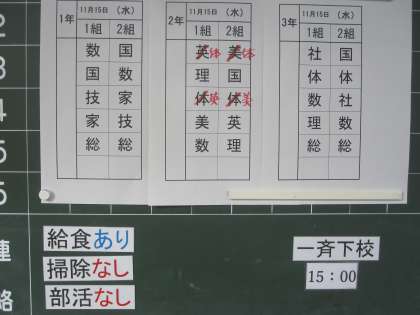 1年 11月15日 (水)
1組 2組
数 国
国 数
技 家
家 技
総 総
2年 11月15日 (水)
1組 2組
英 体 美 体
理 国
体 英 体 美
美 英
数 理
3年 11月15日 (水)
1組 2組
社 国
体 体
数 社
理 数
総 総
2
3
4
5
5
連
絡
給食あり
掃除なし
部活なし
一斉下校
15：00